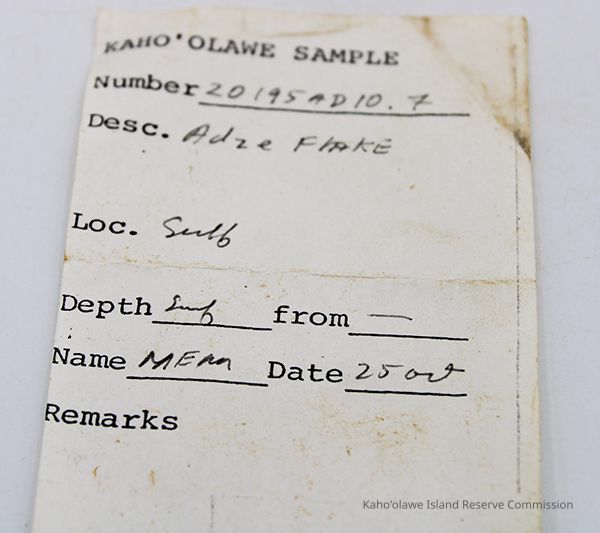 KAHO'OLAWE SAMPLE
Number 20195AD10.7
Desc. Adze FLAKE
Loc. Surf
Depth Surf from —
Name MEM Date 25 Oct
Remarks
Kaho'olawe Island Reserve Commission